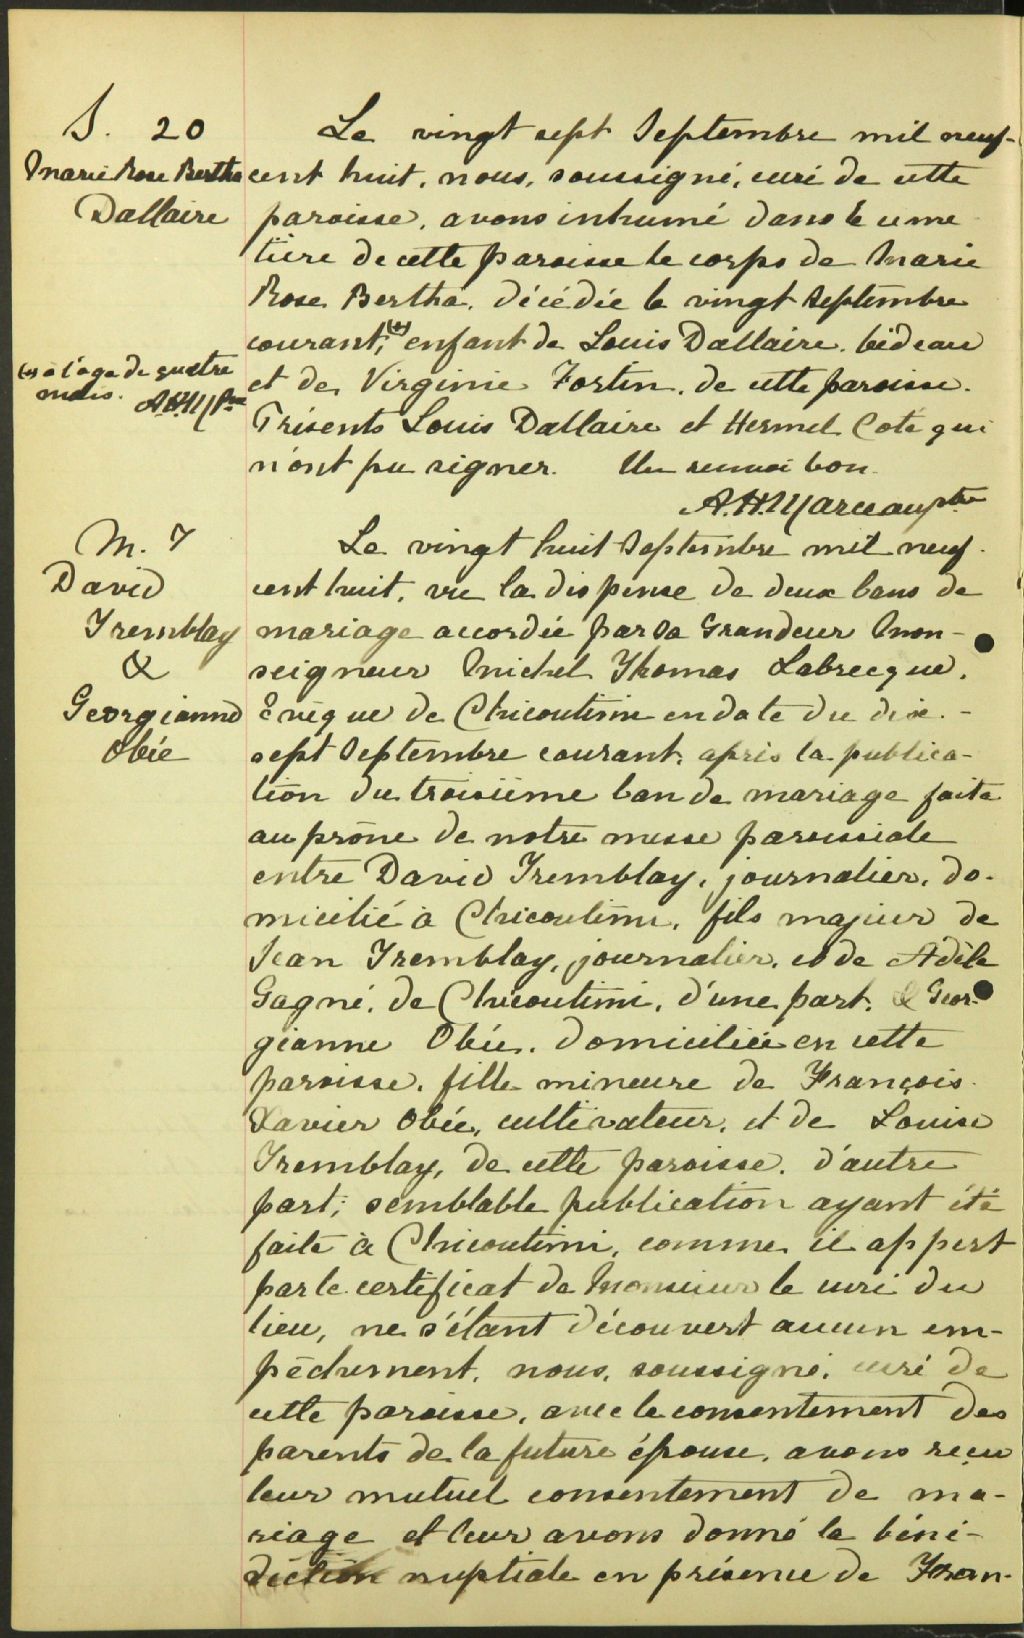 S. 20
Marie Rose Bertha
Dallaire
Le vingt sept Septembre mil neuf-
cent huit, nous, soussigné, curé de cette
paroisse, avons inhumé dans le cime
tière de cette paroisse le corps de Marie
Rose Bertha, décédée le vingt Septembre
courant, (+) enfant de Louis Dallaire, bédeau
et de Virginie Fortin, de cette paroisse.
Présents Louis Dallaire et Hermel Coté qui
n'ont pu signer. Un renvoi bon.
A.H. Marceau ptre
(+) à l'age de quatre
mois. A.H.M. Ptre
M. 7
David
Tremblay
&
Georgianne
Obée
Le vingt huit Septembre mil neuf-
cent huit, vu la dispense de deux bans de
mariage accordée par Sa Grandeur Mon-
seigneur Michel Thomas Labrecque,
Evêque de Chicoutimi en date du dix-
sept Septembre courant, après la publica-
tion du troisième ban de mariage faite
au prône de notre messe paroissiale
entre David Tremblay, journalier, do-
micilié à Chicoutimi, fils majeur de
Jean Tremblay, journalier, et de Adèle
Gagné, de Chicoutimi, d'une part, & Geor-
gianne Obée, domiciliée en cette
paroisse, fille mineure de François
Xavier Obée, cultivateur, et de Louise
Tremblay, de cette paroisse, d'autre
part; semblable publication ayant été
faite à Chicoutimi, comme il appert
par le certificat de Monsieur le curé du
lieu, ne s'étant découvert aucun em-
pêchement, nous, soussigné, curé de
cette paroisse, avec le consentement des
parents de la future épouse, avons reçu
leur mutuel consentement de ma-
riage et leur avons donné la béné-
diction nuptiale en présence de Fran-